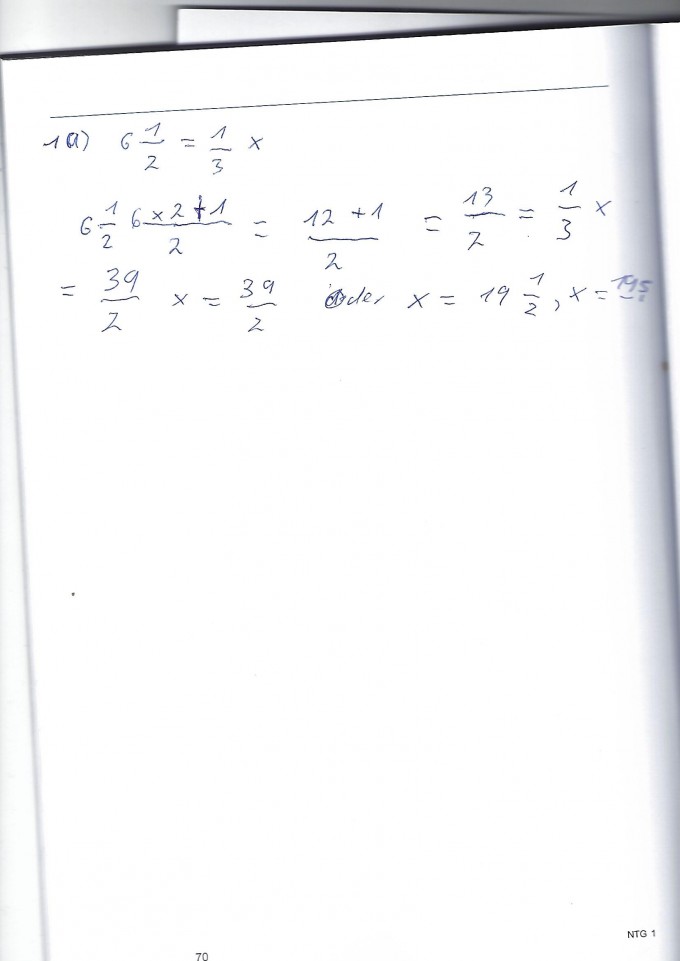 1a) 6 1/2 = 1/3 x
6 1/2 6 x 2 + 1 / 2 = 12 + 1 / 2 = 13/2 = 1/3 x
= 39/2 x = 39/2 oder x = 19 1/2, x =
NTG 1
70